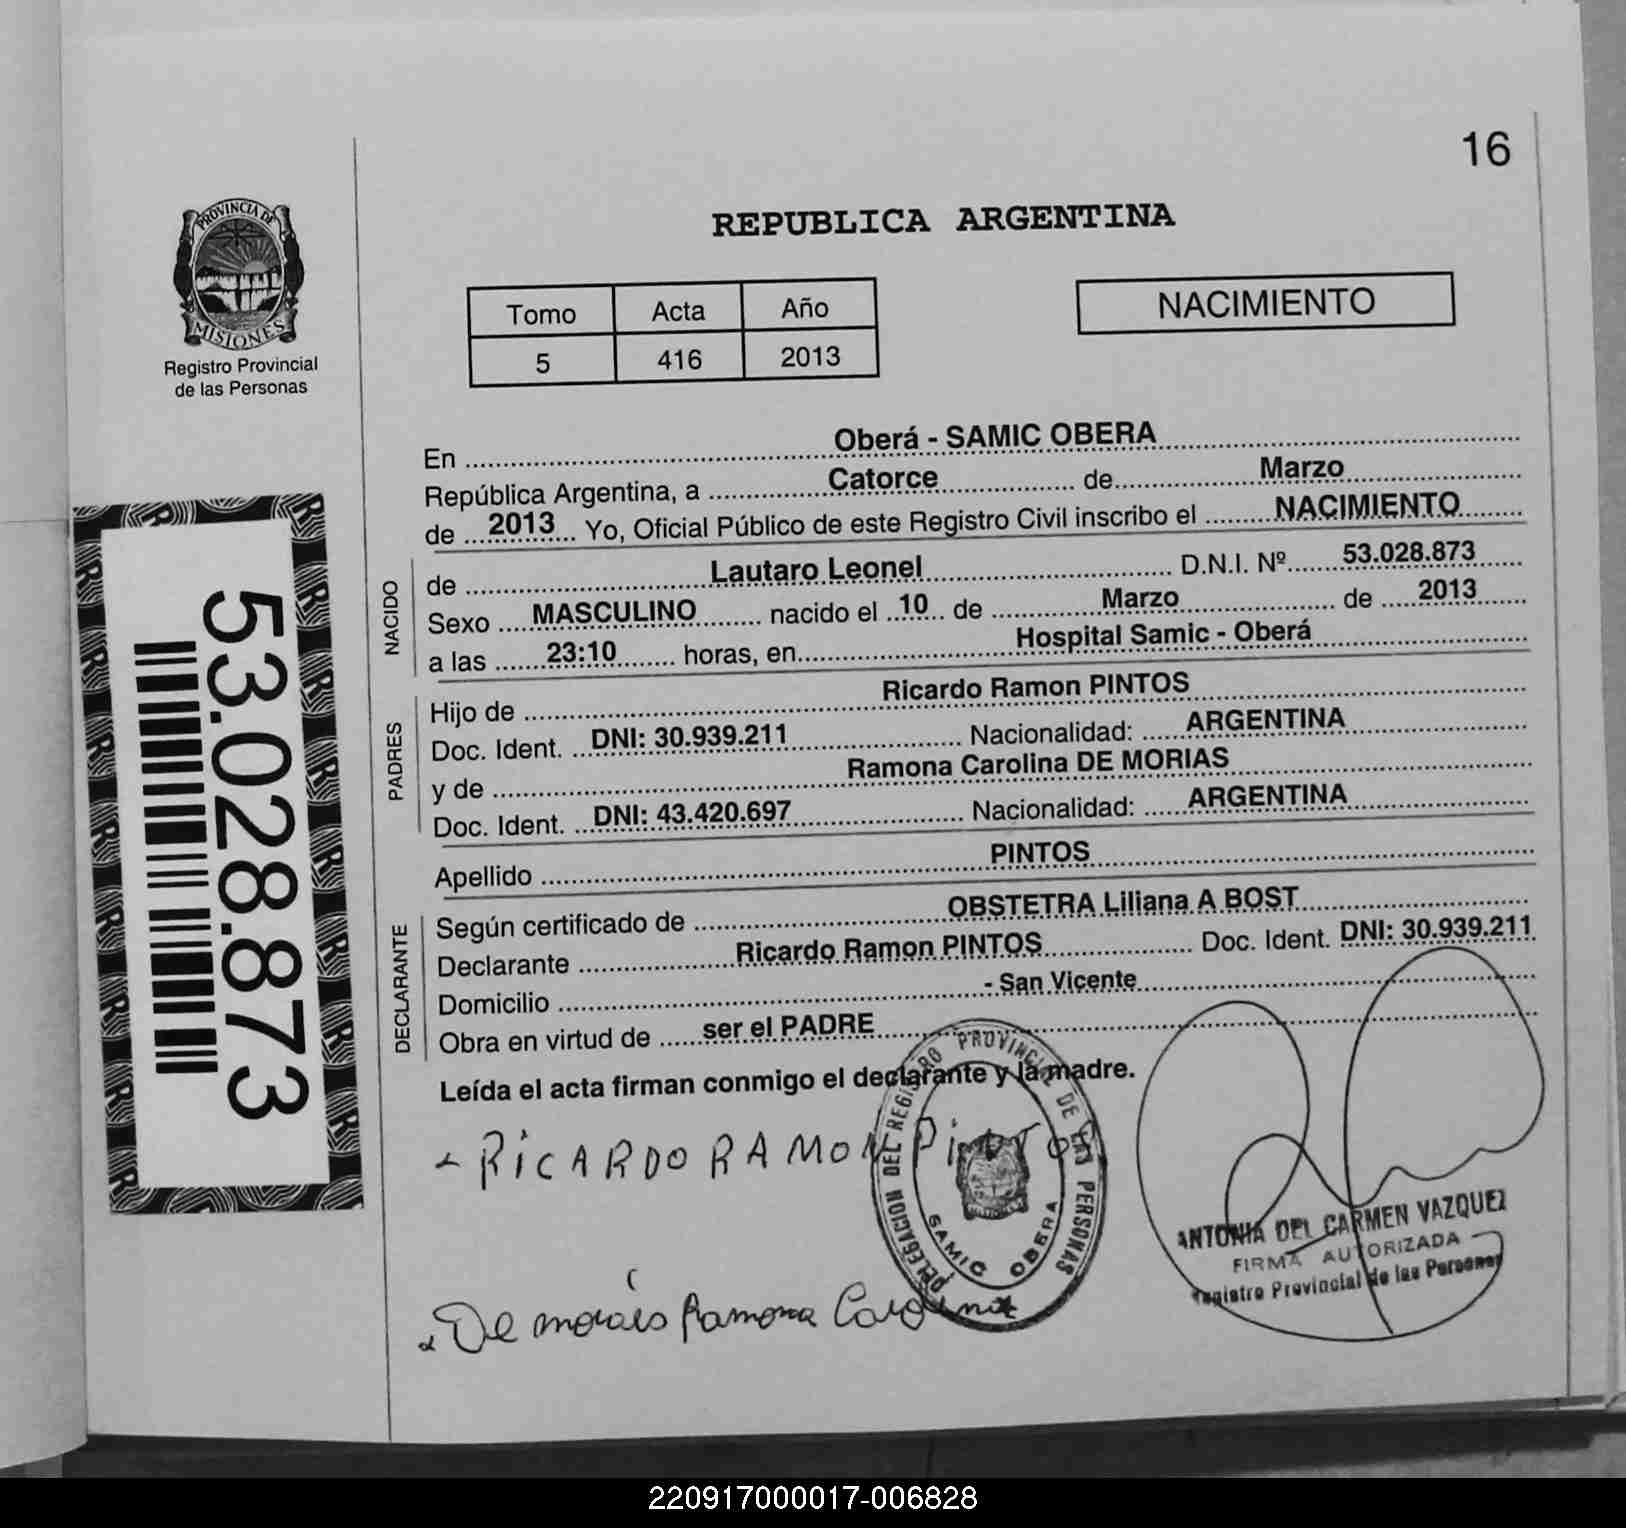 16
PROVINCIA DE
MISIONES
Registro Provincial
de las Personas
REPUBLICA ARGENTINA
Tomo Acta Año
5 416 2013
NACIMIENTO
En Oberá - SAMIC OBERA
República Argentina, a Catorce de Marzo
de 2013 Yo, Oficial Público de este Registro Civil inscribo el NACIMIENTO
NACIDO
de Lautaro Leonel D.N.I. Nº 53.028.873
Sexo MASCULINO nacido el 10 de Marzo de 2013
a las 23:10 horas, en Hospital Samic - Oberá
PADRES
Hijo de Ricardo Ramon PINTOS
Doc. Ident. DNI: 30.939.211 Nacionalidad: ARGENTINA
y de Ramona Carolina DE MORIAS
Doc. Ident. DNI: 43.420.697 Nacionalidad: ARGENTINA
Apellido PINTOS
DECLARANTE
Según certificado de OBSTETRA Liliana A BOST
Declarante Ricardo Ramon PINTOS Doc. Ident. DNI: 30.939.211
Domicilio - San Vicente
Obra en virtud de ser el PADRE
Leída el acta firman conmigo el declarante y la madre.
53.028.873
RICARDO RAMON PINTOS
De morais Ramona Carolina
DELEGACION DEL REGISTRO PROVINCIAL DE LAS PERSONAS
SAMIC OBERA
ANTONIA DEL CARMEN VAZQUEZ
FIRMA AUTORIZADA
Registro Provincial de las Personas
220917000017-006828